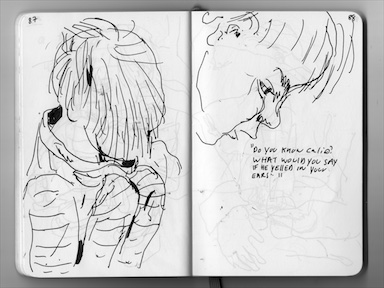 87
88
"DO YOU KNOW CALIO?
WHAT WOULD YOU SAY
IF HE YELLED IN YOUR
EARS- !!